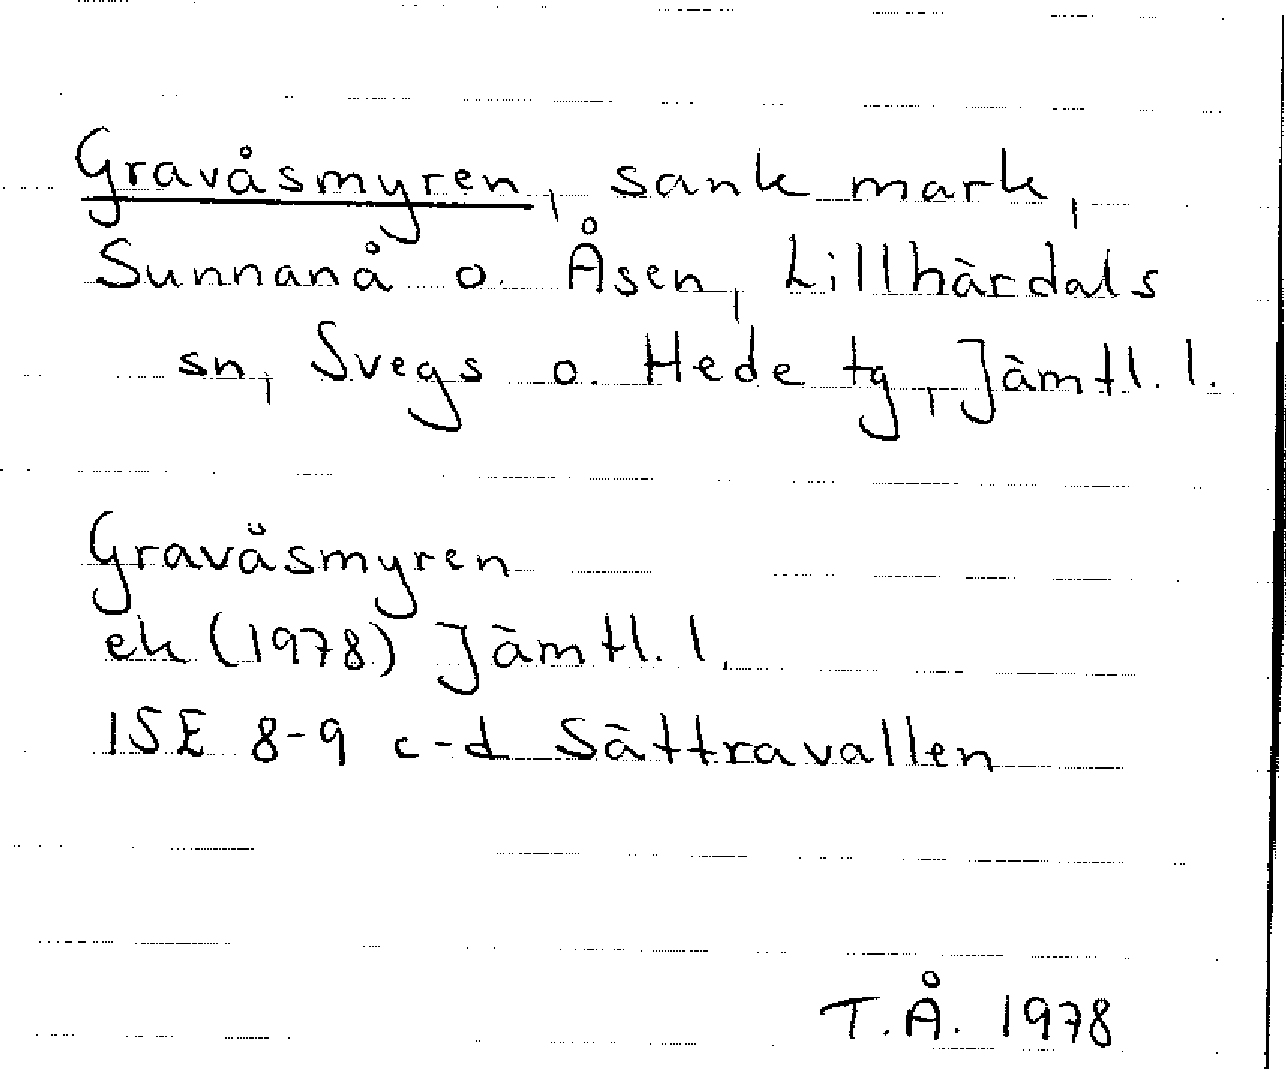 Gravåsmyren, sank mark,
Sunnanå o. Åsen, Lillhärdals
sn, Svegs o. Hede tg, Jämtl. l.
Gravåsmyren
ek (1978) Jämtl. l.
15E 8-9 c-d Sättravallen
T.Å. 1978